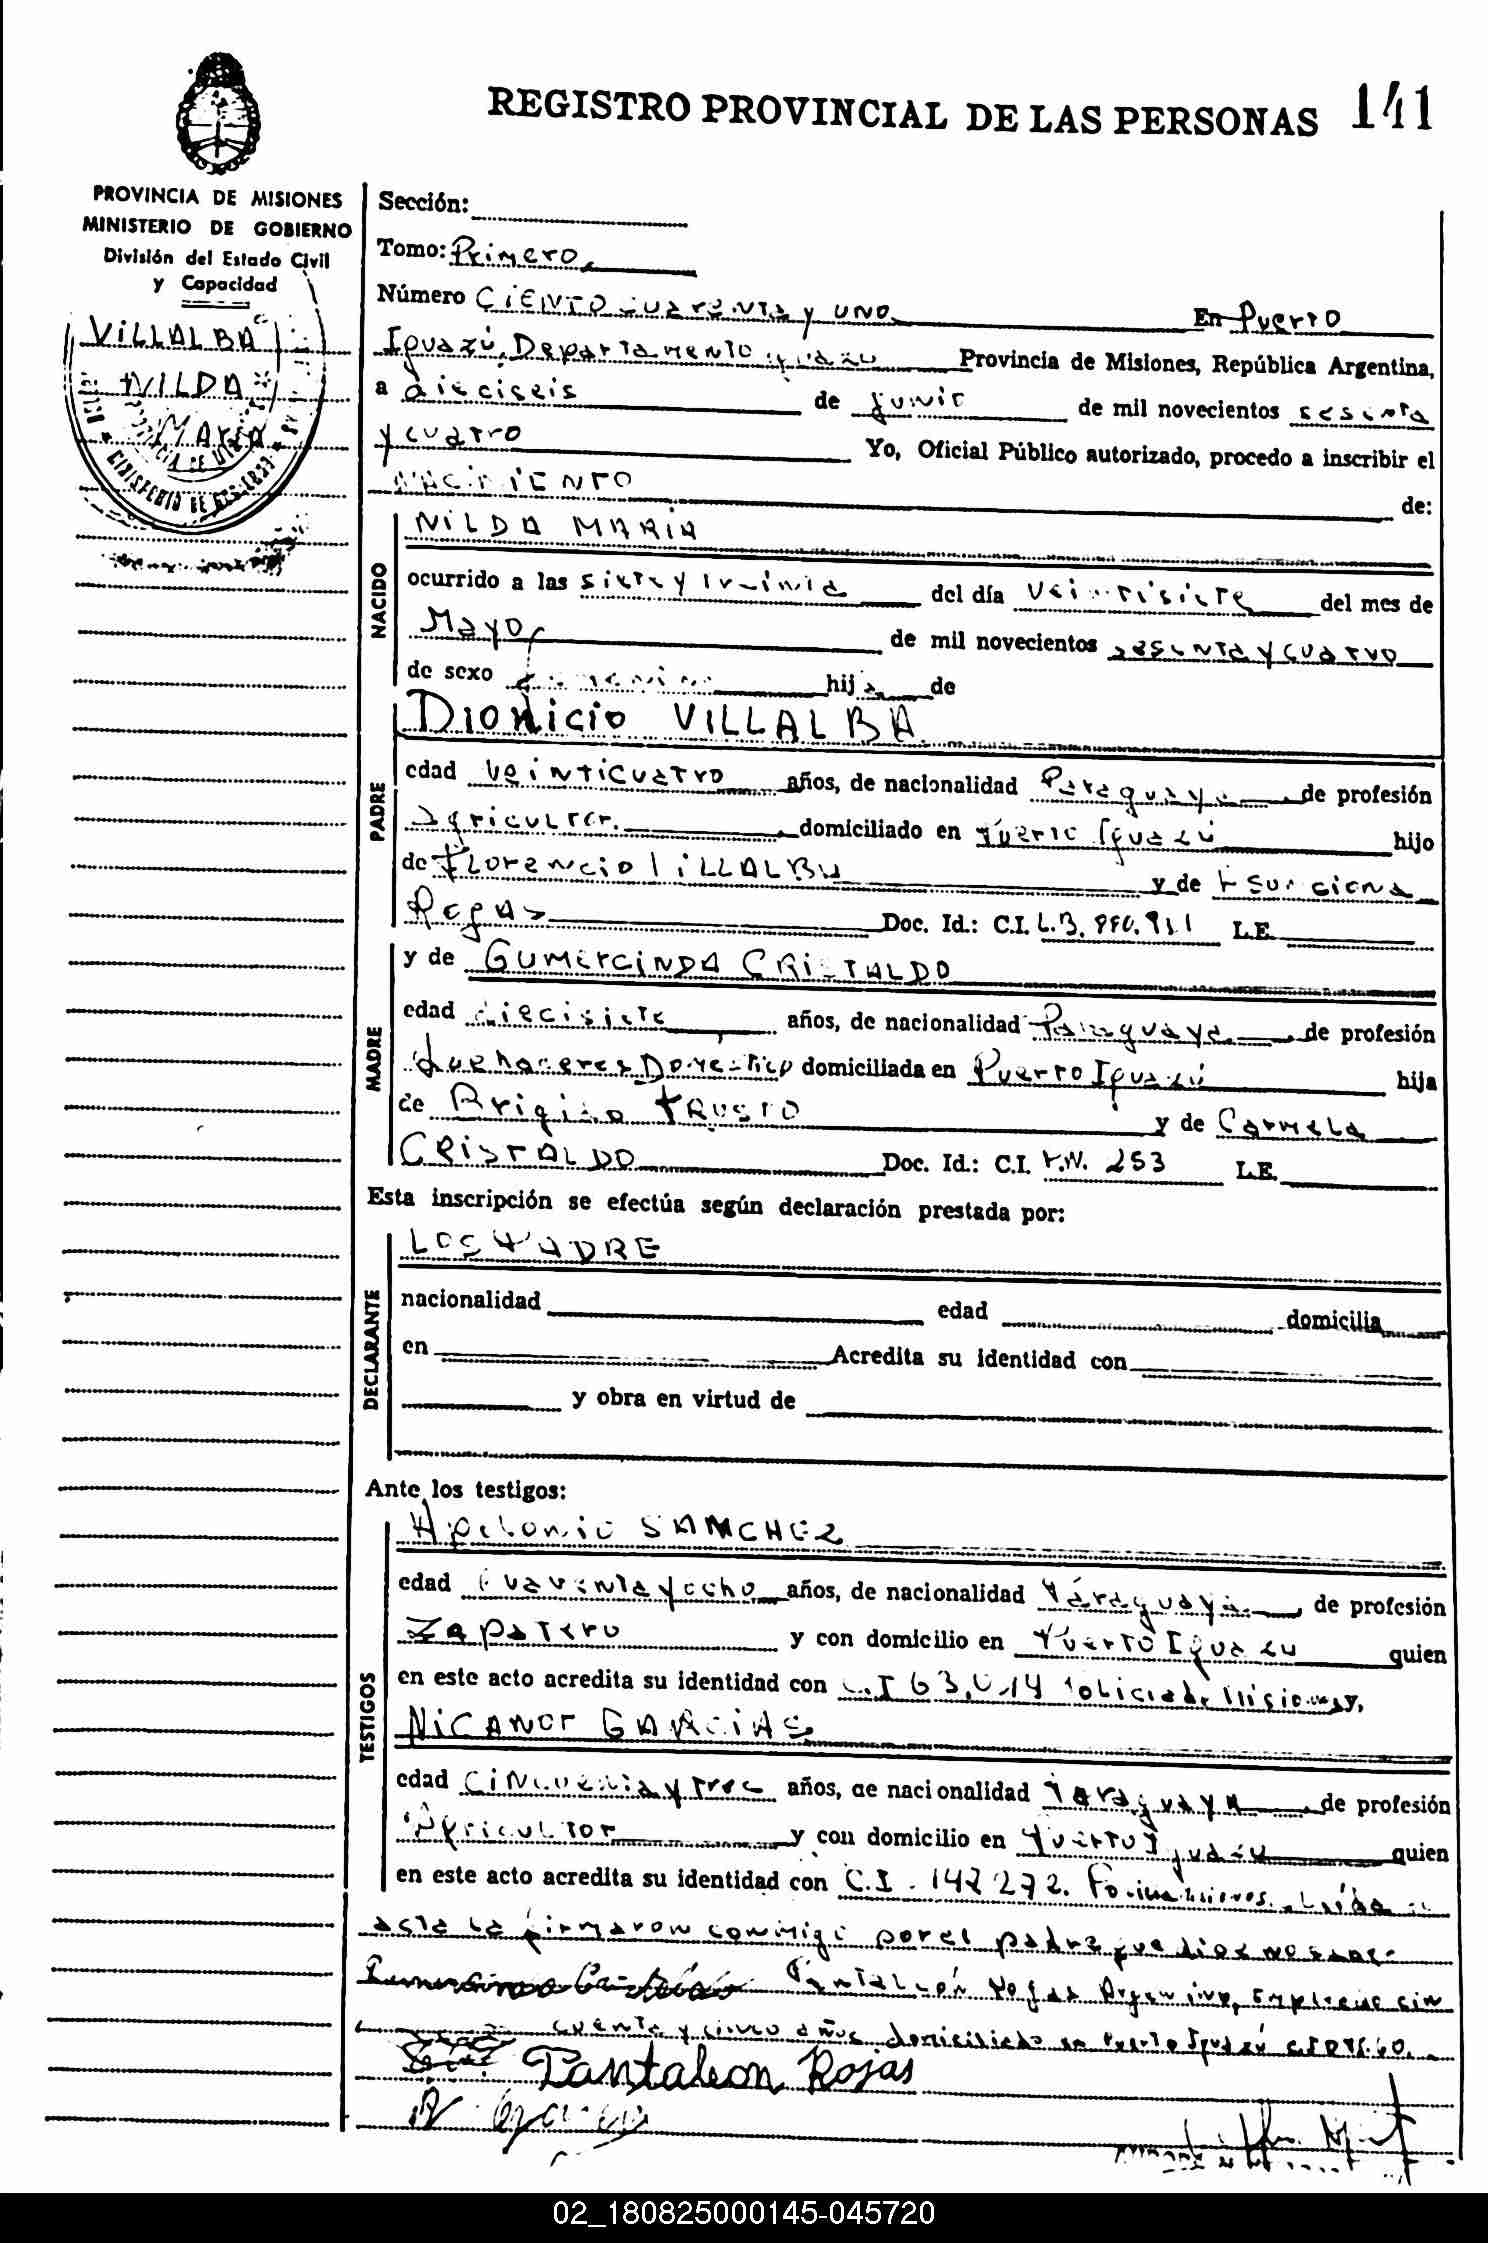 REGISTRO PROVINCIAL DE LAS PERSONAS 141
PROVINCIA DE MISIONES
MINISTERIO DE GOBIERNO
División del Estado Civil
y Capacidad
VILLALBA
NILDA
MARIA
Sección:
Tomo: Primero
Número CIENTO cuarenta y uno En Puerto
Iguazú, Departamento Iguazú Provincia de Misiones, República Argentina,
a dieciseis de junio de mil novecientos sesenta
y cuatro Yo, Oficial Público autorizado, procedo a inscribir el
NACIMIENTO de:
NACIDO
NILDA MARIA
ocurrido a las siete y treinta del día veintisiete del mes de
Mayo de mil novecientos sesenta y cuatro
de sexo femenino hija de
PADRE
Dionicio VILLALBA
edad veinticuatro años, de nacionalidad Paraguaya de profesión
agricultor. domiciliado en Puerto Iguazú hijo
de Florencio VILLALBA y de Asunciona
Rojas Doc. Id.: C.I. L.E.
MADRE
y de GUMERCINDA CRISTALDO
edad diecisiete años, de nacionalidad Paraguaya de profesión
Quehaceres Domestico domiciliada en Puerto Iguazú hija
de y de Carmela
CRISTALDO Doc. Id.: C.I. 253 L.E.
Esta inscripción se efectúa según declaración prestada por:
DECLARANTE
LOS PADRE
nacionalidad edad domicilia
en Acredita su identidad con
y obra en virtud de
Ante los testigos:
TESTIGOS
Apolonio SANCHEZ
edad cuarenta y ocho años, de nacionalidad Paraguaya de profesión
Zapatero y con domicilio en Puerto Iguazu quien
en este acto acredita su identidad con C.I 63.014 Policia de Misiones y,
NICANOR GARCIAS
edad cincuenta y tres años, de nacionalidad Paraguaya de profesión
Agricultor y con domicilio en Puerto Iguazu quien
en este acto acredita su identidad con C.I. 147272. Po. Misiones. Leída el
acta la firmaron conmigo por el padre que dice no saber
Pantaleón Rojas Argentino, Empleado cin
cuenta y cinco años domiciliado en Puerto Iguazú
Pantaleon Rojas
02_180825000145-045720